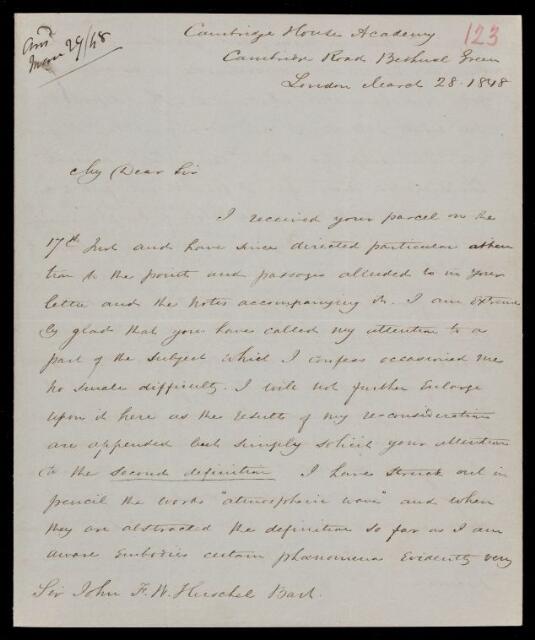 Ansd
March 29/48
123
Cambridge House Academy
Cambridge Road Bethnal Green
London March 28. 1848
My Dear Sir
I received your parcel on the
17th Inst and have since directed particular atten
tion to the points and passages alluded to in your
letter and the Notes accompanying it. I am extreme
ly glad that you have called my attention to a
part of the subject which I confess occasioned me
no small difficulty. I will not further enlarge
upon it here as the results of my re-consideration
are appended but simply solicit your attention
to the second definition I have struck out in
pencil the words "atmospheric wave" and when
they are abstracted the definition so far as I am
aware embodies certain phænomena evidently very
Sir John F. W. Herschel Bart.